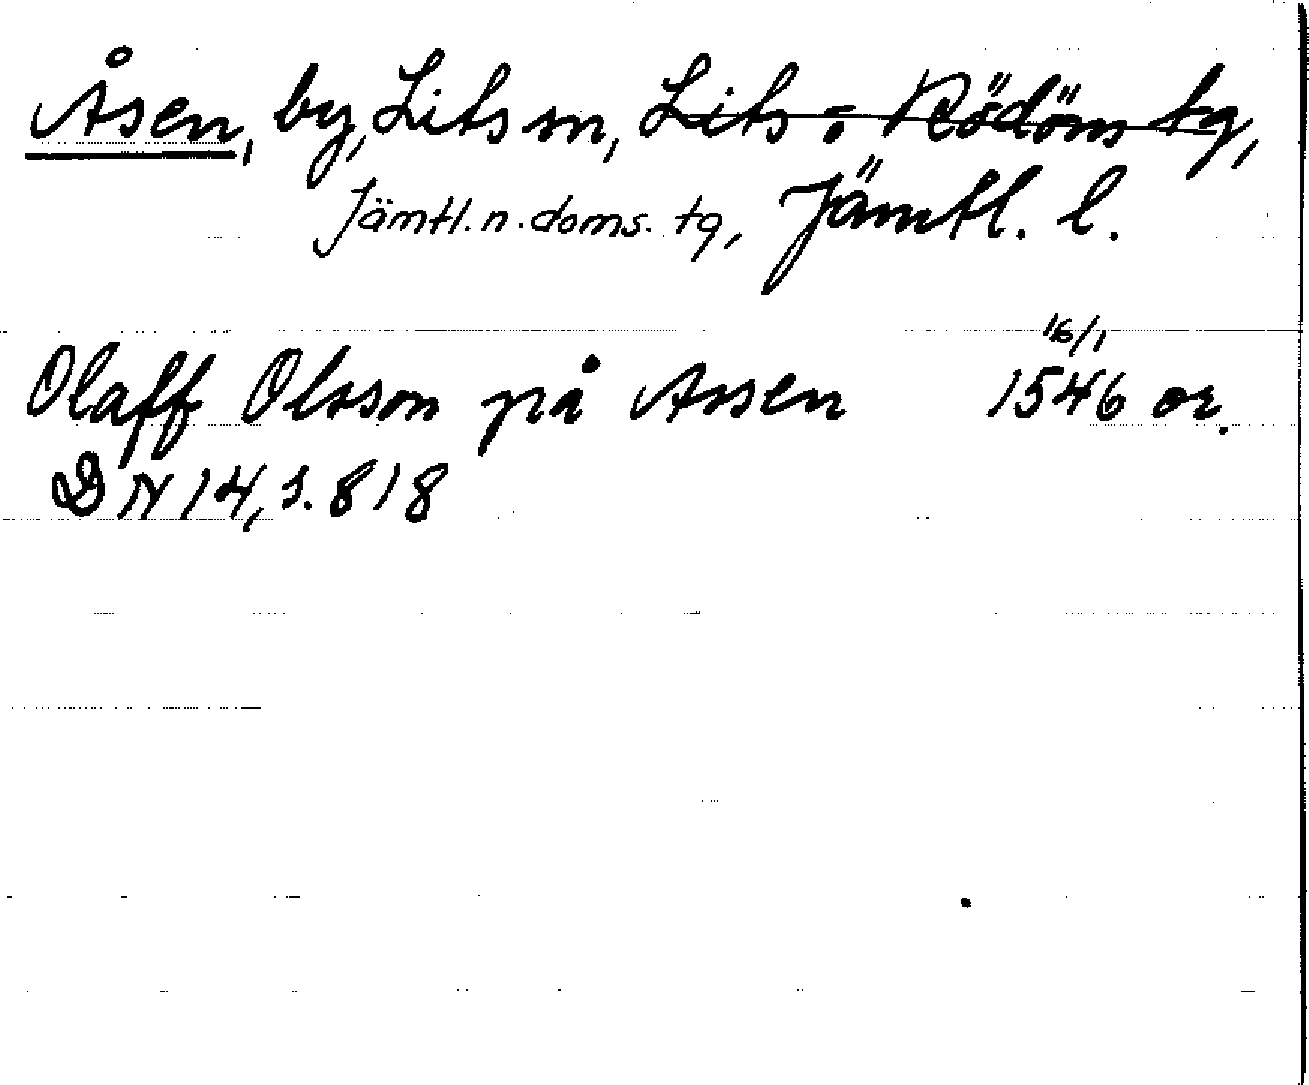 Åsen, by, Lits sn, Lits o Rödöns tg,
Jämtl. n. doms. tg, Jämtl. l.
16/1
Olaff Olsson på Assen 1546 or.
DN 14, s. 818